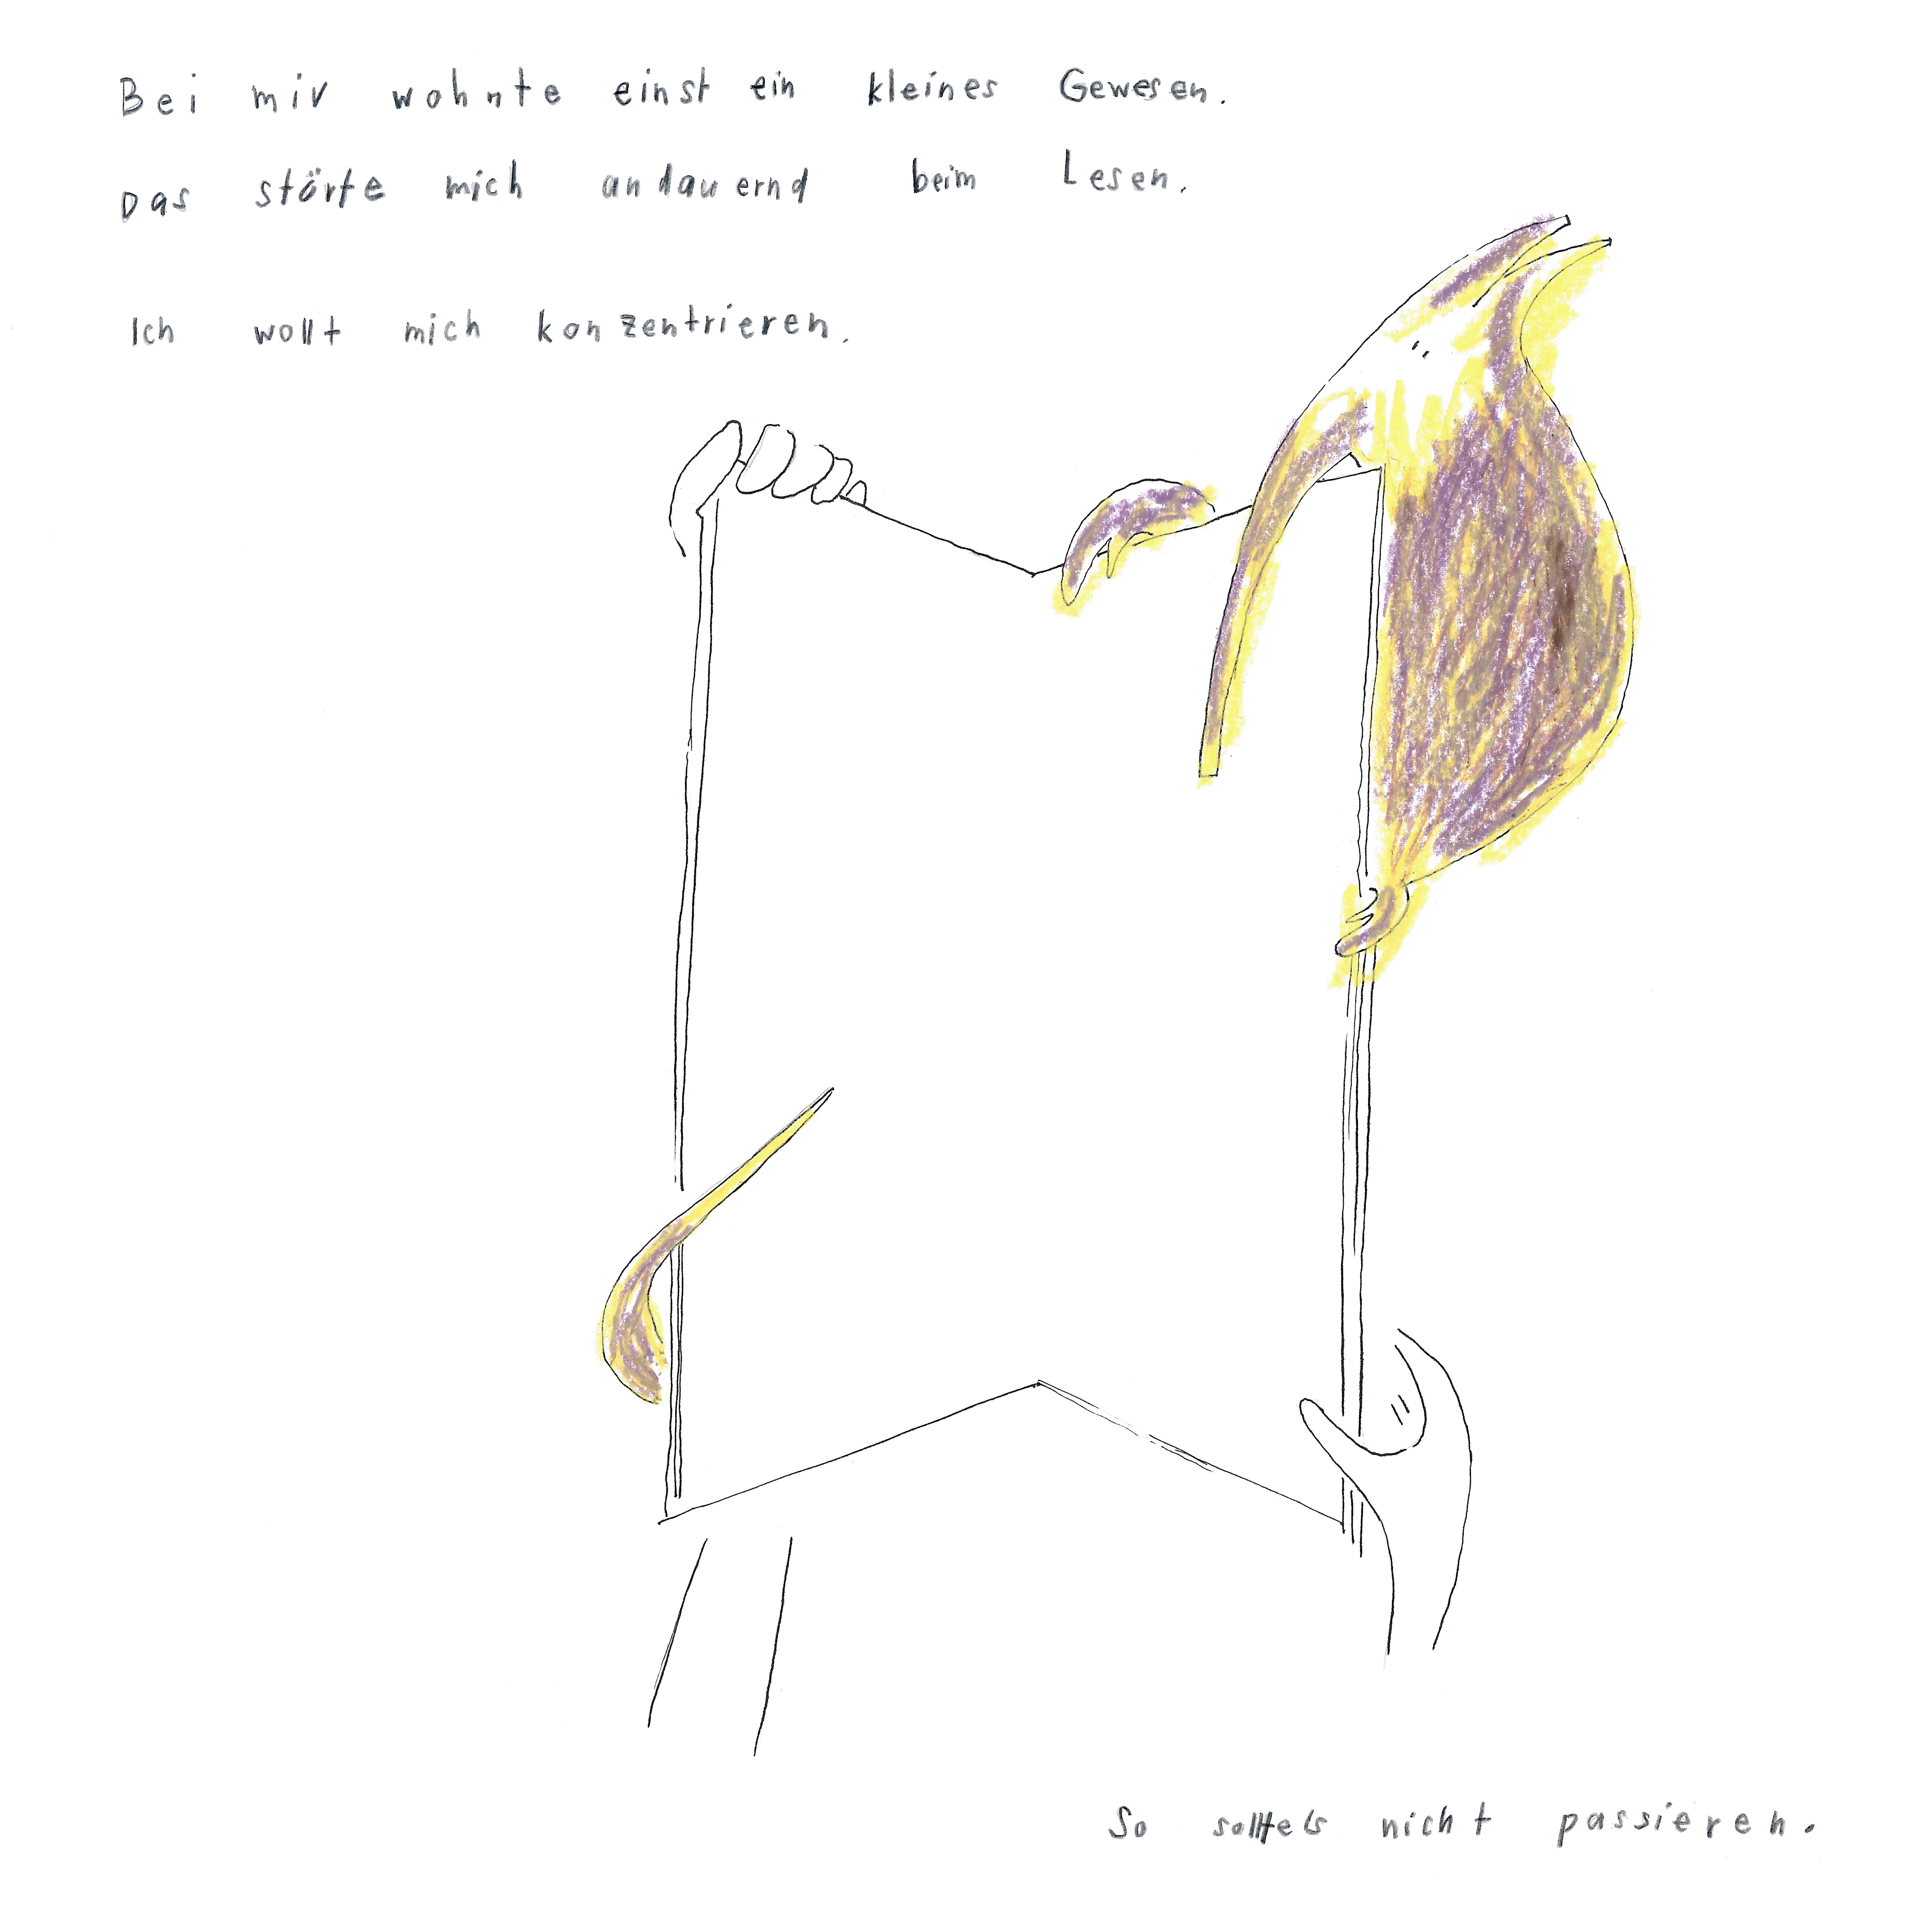 Bei mir wohnte einst ein kleines Gewesen.
Das störte mich andauernd beim Lesen.
Ich wollt mich konzentrieren.
So sollte's nicht passieren.